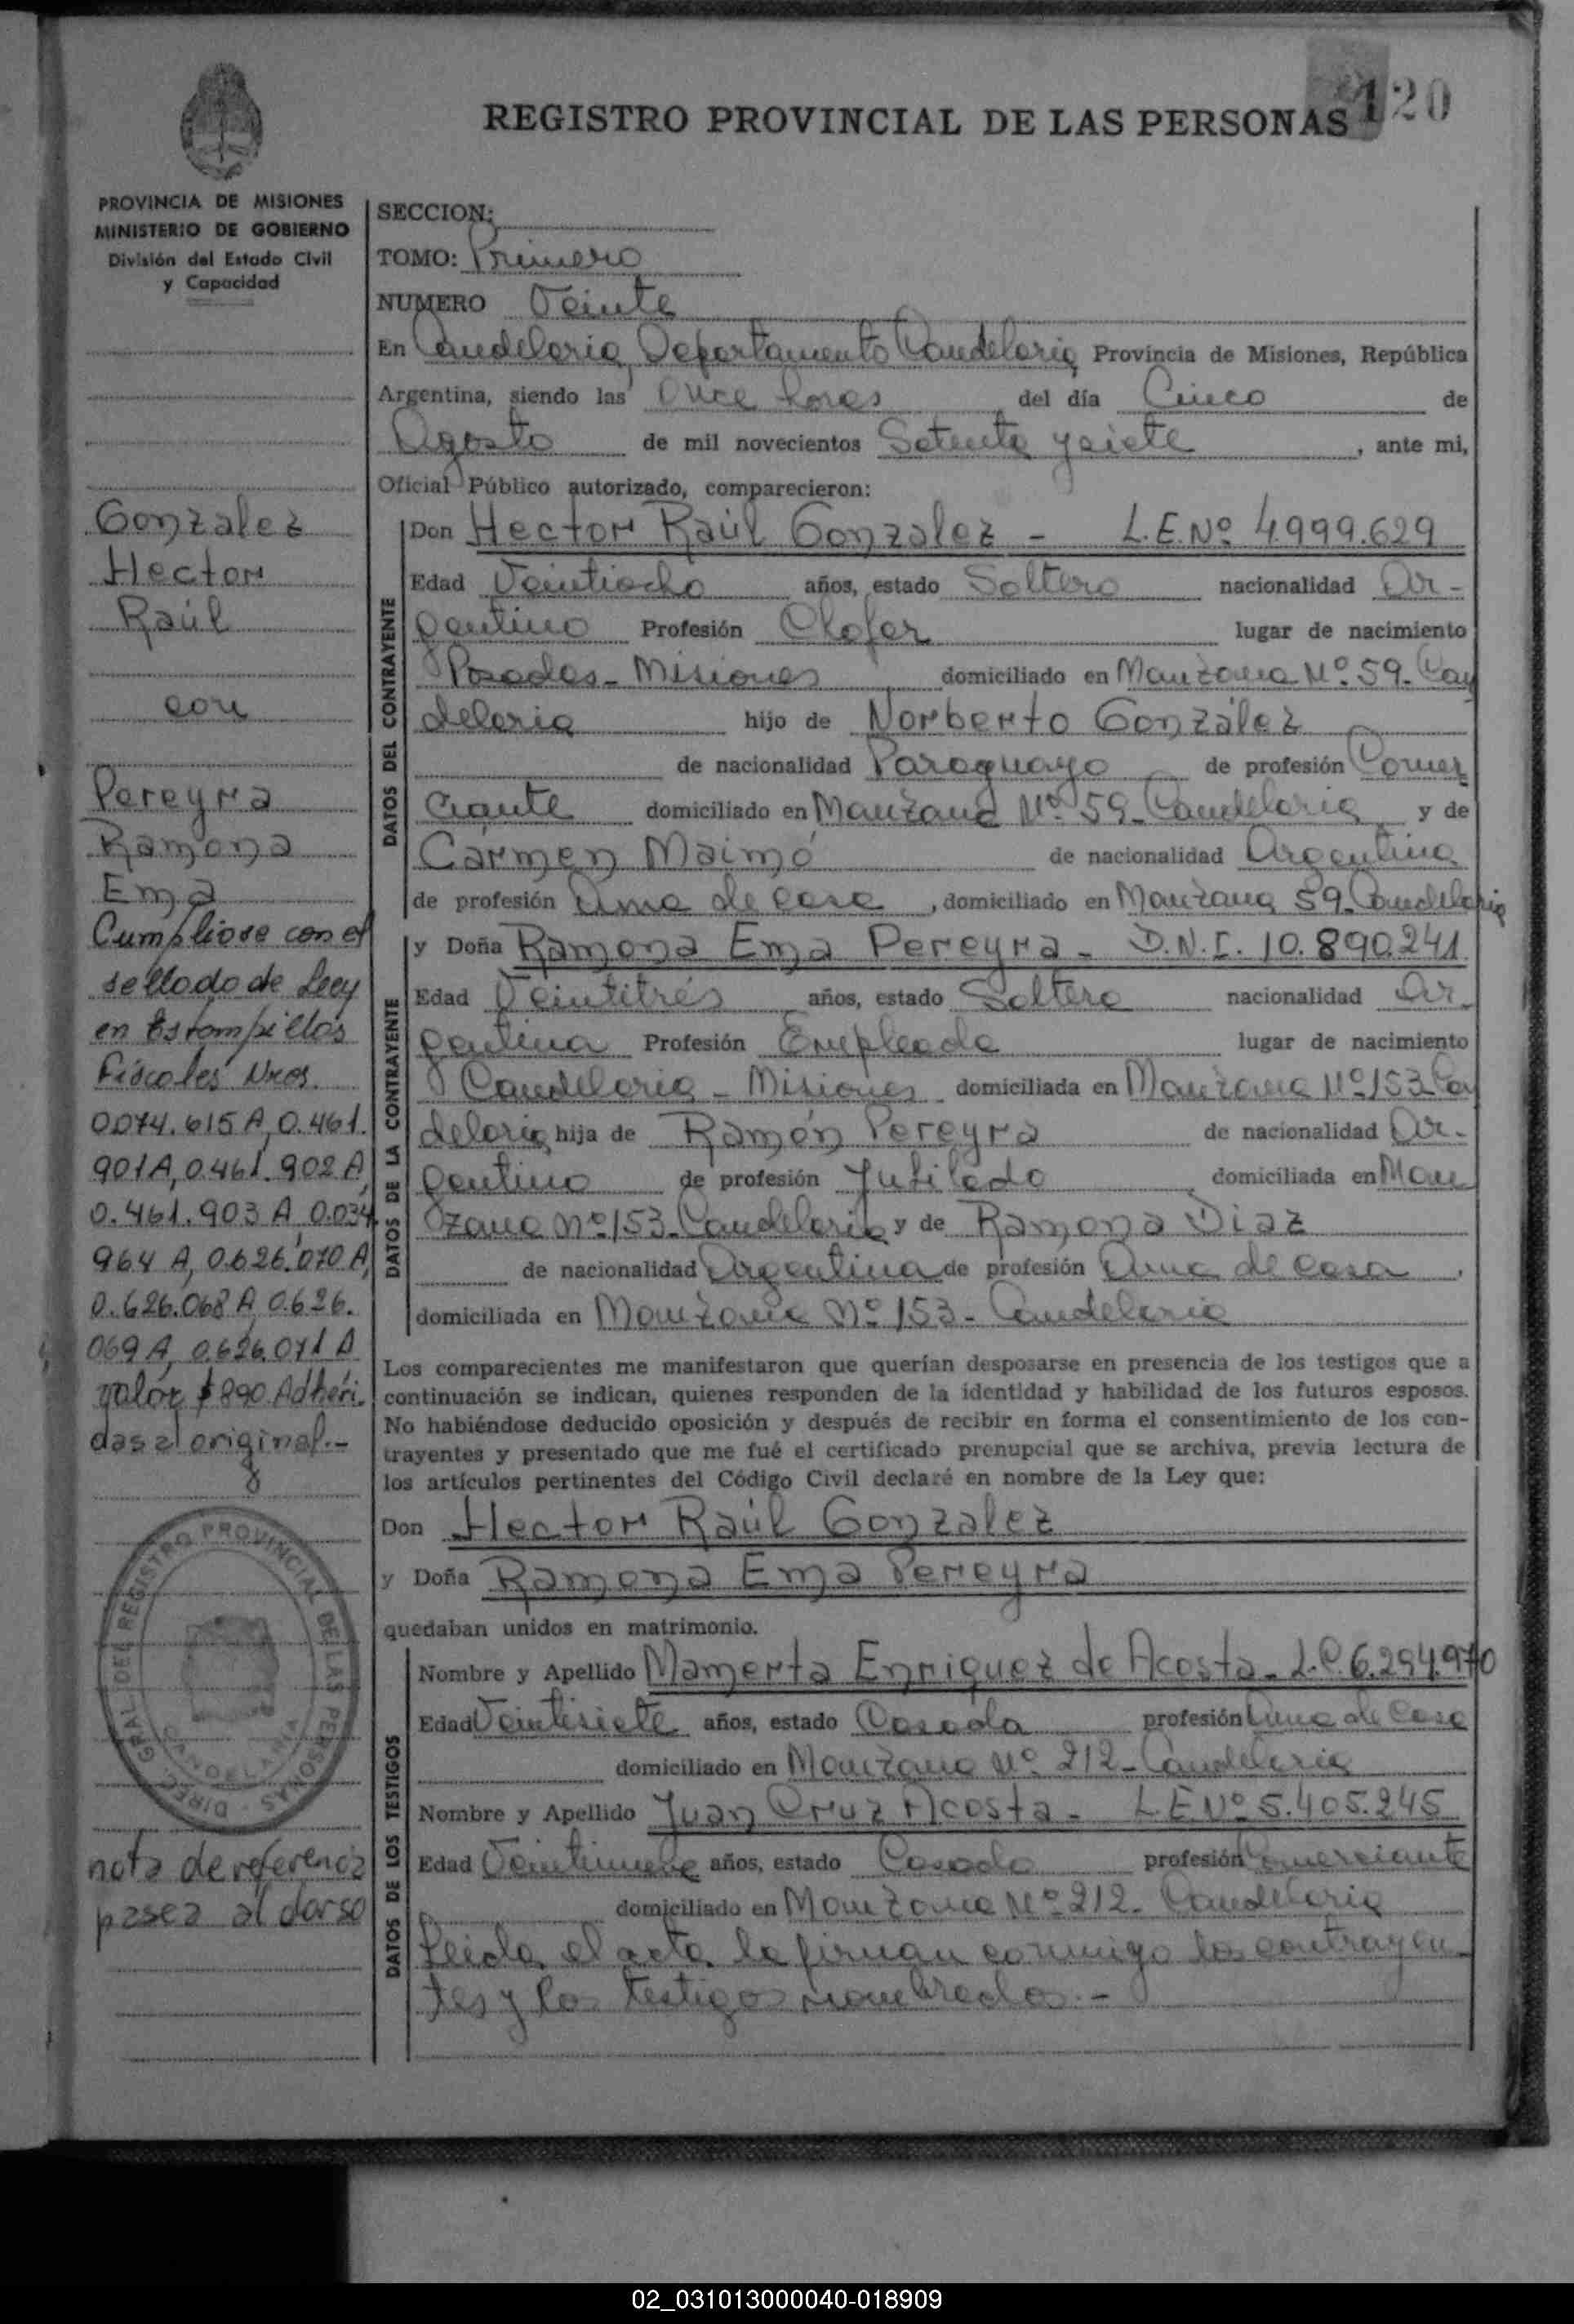 120
REGISTRO PROVINCIAL DE LAS PERSONAS
PROVINCIA DE MISIONES
MINISTERIO DE GOBIERNO
División del Estado Civil
y Capacidad
Gonzalez
Hector
Raúl
con
Pereyra
Ramona
Ema
Cumpliose con el
sellado de Ley
en Estampillas
Fiscales Nros.
0074.615 A, 0.461.
901 A, 0.461.902 A,
0.461.903 A 0.034.
964 A, 0.626.070 A,
0.626.068 A, 0.626.
069 A, 0.626.071 A
valor $890. Adheri.
das al original.-
DIREC. GRAL. DEL REGISTRO PROVINCIAL DE LAS PERSONAS
CANDELARIA
nota de referencia
pasea al dorso
SECCION:
TOMO: Primero
NUMERO Veinte
En Candelaria, Departamento Candelaria Provincia de Misiones, República
Argentina, siendo las Once horas del día Cinco de
Agosto de mil novecientos Setenta y siete, ante mi,
Oficial Público autorizado, comparecieron:
DATOS DEL CONTRAYENTE
Don Hector Raúl Gonzalez - L.E.Nº 4.999.629
Edad Veintiocho años, estado Soltero nacionalidad Ar-
gentino Profesión Chofer lugar de nacimiento
Posadas - Misiones domiciliado en Manzana Nº 59 - Can
delaria hijo de Norberto González
de nacionalidad Paraguayo de profesión Comer
ciante domiciliado en Manzana Nº 59 - Candelaria y de
Carmen Maimó de nacionalidad Argentina
de profesión Ama de casa, domiciliado en Manzana 59 - Candelaria
DATOS DE LA CONTRAYENTE
y Doña Ramona Ema Pereyra - D.N.I. 10.890.241
Edad Veintitrés años, estado Soltera nacionalidad Ar-
gentina Profesión Empleada lugar de nacimiento
Candelaria - Misiones domiciliada en Manzana Nº 153 Can
delaria, hija de Ramón Pereyra de nacionalidad Ar-
gentino de profesión Jubilado domiciliada en Man
zana nº 153 - Candelaria y de Ramona Diaz
de nacionalidad Argentina de profesión Ama de casa,
domiciliada en Manzana Nº 153 - Candelaria
Los comparecientes me manifestaron que querían desposarse en presencia de los testigos que a
continuación se indican, quienes responden de la identidad y habilidad de los futuros esposos.
No habiéndose deducido oposición y después de recibir en forma el consentimiento de los con-
trayentes y presentado que me fué el certificado prenupcial que se archiva, previa lectura de
los artículos pertinentes del Código Civil declaré en nombre de la Ley que:
Don Hector Raúl Gonzalez
y Doña Ramona Ema Pereyra
quedaban unidos en matrimonio.
DATOS DE LOS TESTIGOS
Nombre y Apellido Mamerta Enriquez de Acosta - L.C. 6.294.970
Edad Veintisiete años, estado Casada profesión Ama de Casa
domiciliado en Manzana Nº 212 - Candelaria
Nombre y Apellido Juan Cruz Acosta - L.E.Nº 5.405.245
Edad Veintinueve años, estado Casado profesión Comerciante
domiciliado en Manzana Nº 212 - Candelaria
Leida el acta la firman conmigo los contrayen-
tes y los testigos nombrados.-
02_031013000040-018909